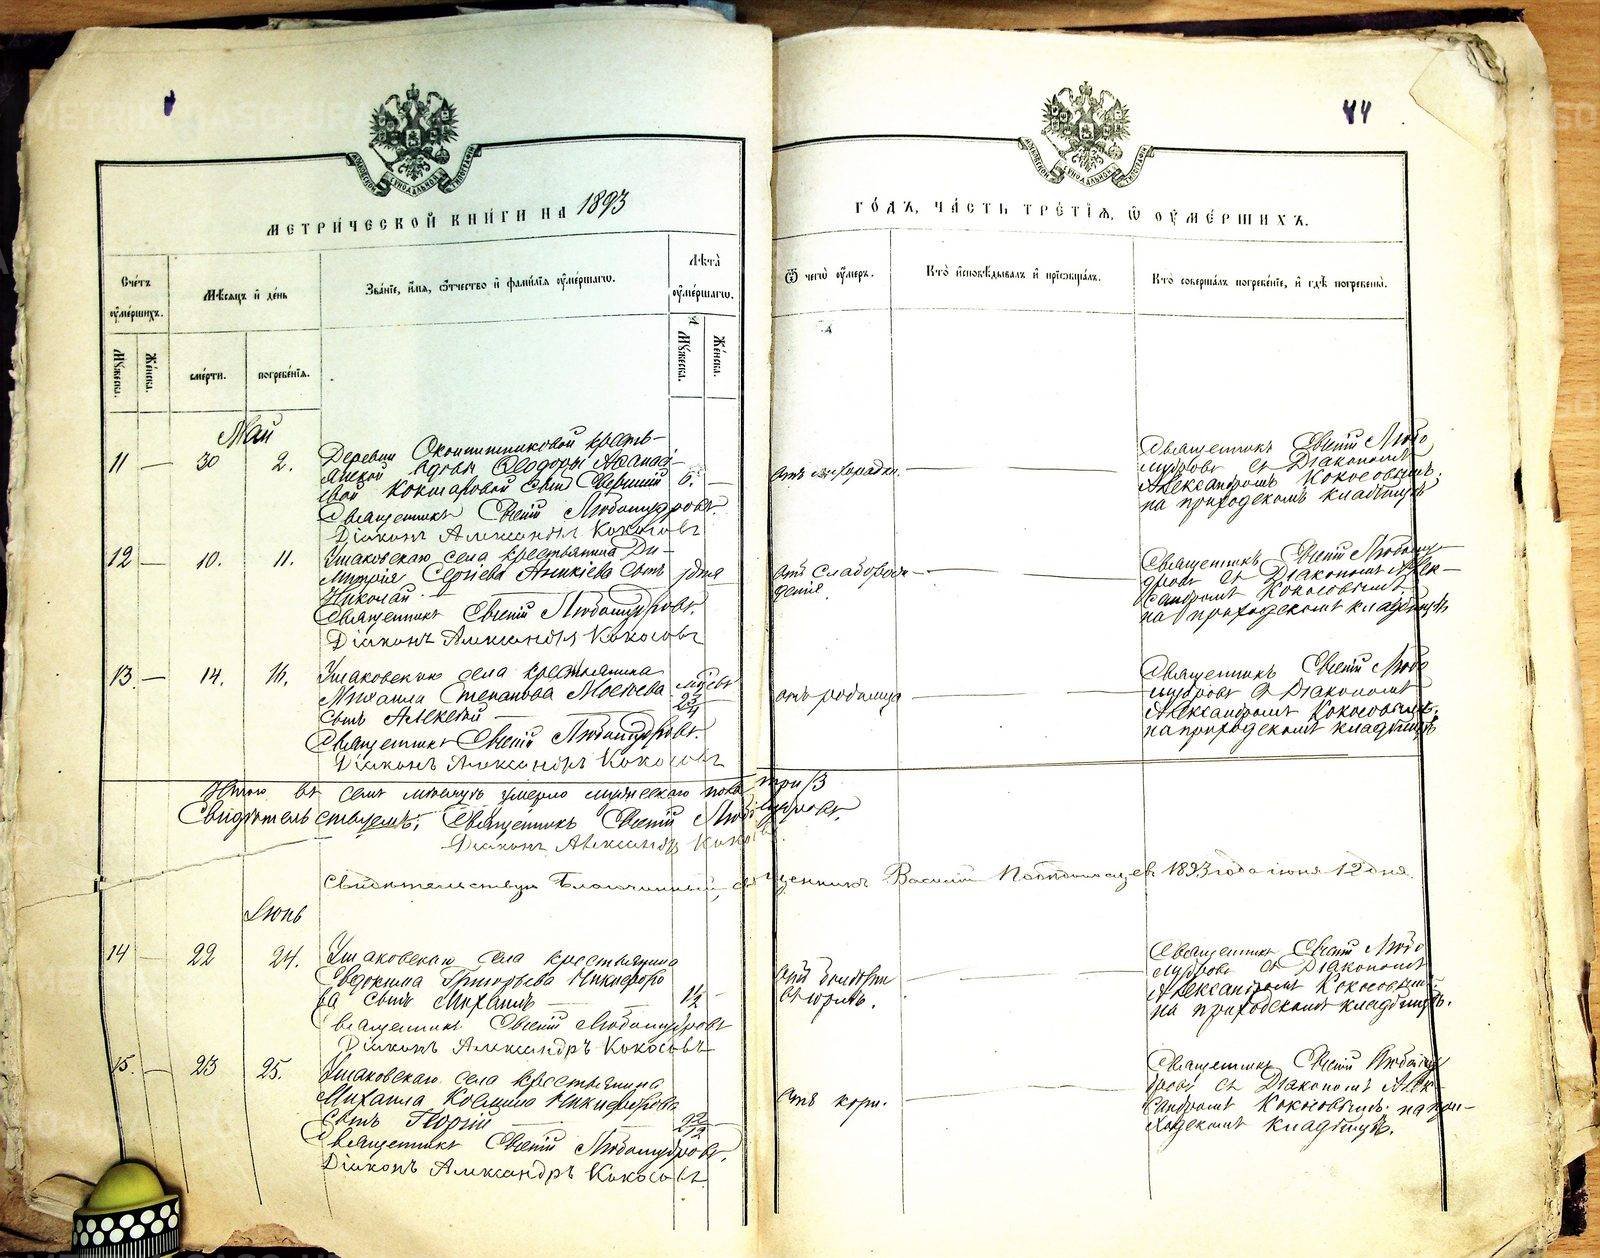 44
МОСКОВСКОЙ СѴНОДАЛЬНОЙ ТИПОГРАФІИ
МОСКОВСКОЙ СѴНОДАЛЬНОЙ ТИПОГРАФІИ
МЕТРИ́ЧЕСКОЙ КНИ́ГИ НА 1893
ГО́ДЪ, ЧА́СТЬ ТРЕ́ТІѦ, Ѿ ОУМЕ́РШИХЪ.
Сче́тъ оуме́ршихъ.
Мѣ́сѧцъ и де́нь
Зва́нїе, и́мѧ, ѻ́тчество и фами́лїѧ оуме́ршагѡ.
Лѣ́та оуме́ршагѡ.
Ѿ чегѡ̀ оу́меръ.
Кто̀ исповѣ́дывалъ и прїѡбща́лъ.
Кто̀ соверша́лъ погребе́нїе, и гдѣ̀ погребены̀.
Му́жеска.
Же́нска.
сме́рти.
погребе́нїѧ.
Му́жеска.
Же́нска.
Май
11 — 30 2. Деревни кресть-
янской вдовы Ѳеодоры Аѳанась-
евой Кокшаровой сынъ 6. —
Священникъ Евгеній Любомудровъ.
Діаконъ Александръ Кокосовъ
отъ лихорадки.
Священникъ Евгеній Любо
мудровъ съ Діакономъ
Александромъ Кокосовымъ,
на приходскомъ кладбищѣ
12 — 10. 11. Ушаковскаго села крестьянина Ди-
митрія Сергіева Аникіева сынъ 1 дня
Николай
Священникъ Евгеній Любомудровъ.
Діаконъ Александръ Кокосовъ
отъ слаборож-
денія.
Священникъ Евгеній Любому
дровъ съ Діакономъ Алек-
сандромъ Кокосовымъ
на приходскомъ кладбищѣ
13. — 14. 16. Ушаковскаго села крестьянина
Михаила Степанова сынъ Алексѣй
Священникъ Евгеній Любомудровъ.
Діаконъ Александръ Кокосовъ
отъ родимца
Священникъ Евгеній Любо
мудровъ съ Діакономъ
Александромъ Кокосовымъ.
на приходскомъ кладбищѣ
Итого въ семъ мѣсяцѣ умерло мужескаго пола три /3
Свидѣтельствуемъ: Священникъ Евгеній Любомудровъ.
Діаконъ Александръ Кокосовъ
Свидѣтельствую Благочинный, священникъ Василій 1893 года іюня 12 дня.
Іюнь
14 — 22 24. Ушаковскаго села крестьянина
Евдокима Григорьева Никифоро
ва сынъ Михаилъ — 1½ —
Священникъ Евгеній Любомудровъ
Діаконъ Александръ Кокосовъ
отъ болѣзни
въ горлѣ.
Священникъ Евгеній Любо
мудровъ съ Діакономъ
Александромъ Кокосовымъ.
на приходскомъ кладбищѣ.
15. — 23 25. Ушаковскаго села крестьянина
Михаила Космина Никифорова
сынъ Георгій
Священникъ Евгеній Любомудровъ.
Діаконъ Александръ Кокосовъ.
отъ кори.
Священникъ Евгеній Любому
дровъ съ Діакономъ Алек-
сандромъ Кокосовымъ. на при-
ходскомъ кладбищѣ.